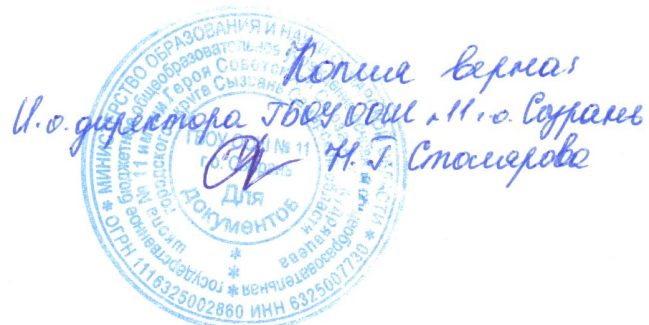 Копия верна:
И.о. директора ГБОУ ООШ №11 г.о. Сызрань
Н.Г. Столярова
МИНИСТЕРСТВО ОБРАЗОВАНИЯ И НАУКИ
ОБЛАСТИ
ОГРН 1116325002860 ИНН 6325007730
государственное бюджетное общеобразовательное
общеобразовательная школа № 11 имени Героя Советского
городского округа Сызрань
области
ГБОУ ООШ № 11
г.о. Сызрань
Для
документов